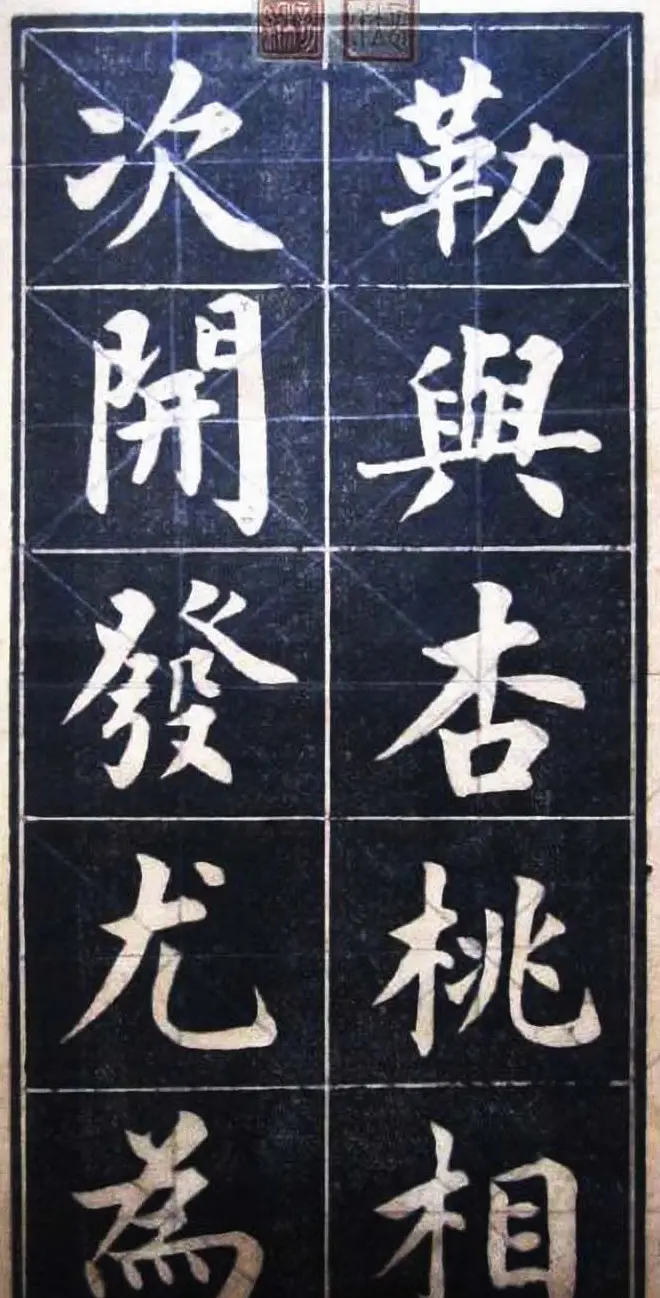 勒與杏桃相
次開發尤為